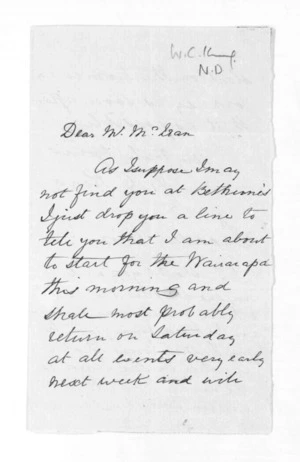 W.C. King
N.D
Dear Mr. McLean
As I suppose I may
not find you at Bethune's
I just drop you a line to
tell you that I am about
to start for the Wairarapa
this morning and
shall most probably
return on Saturday
at all events very early
next week and will